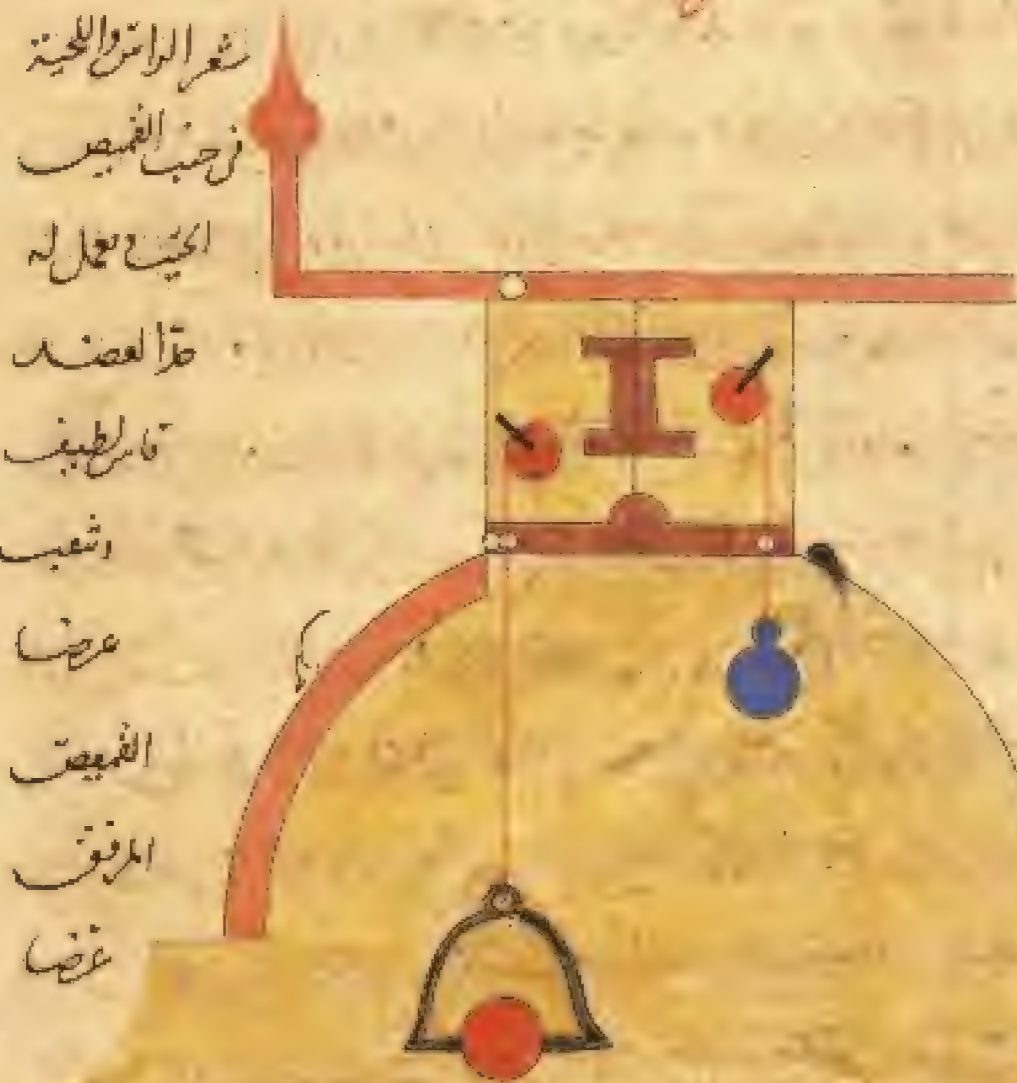 شعر الراس واللحية
في جنب القميص
الجنب ويعمل له
هذا العضد
لطيف

عرضا
القميص
المرفق
عرضا